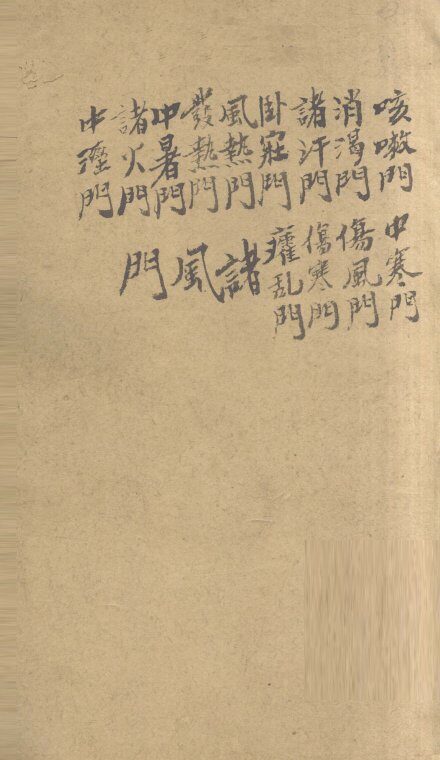 咳嗽門
消渴門
諸汗門
卧寐門
風熱門
發熱門
中暑門
諸火門
中溼門
中寒門
傷風門
傷寒門
癨乱門
諸風門